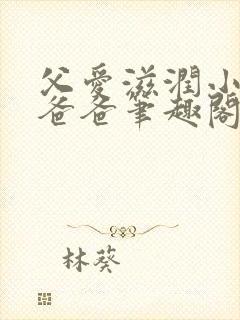 父爱滋润小
爸爸笔趣阁
林葵